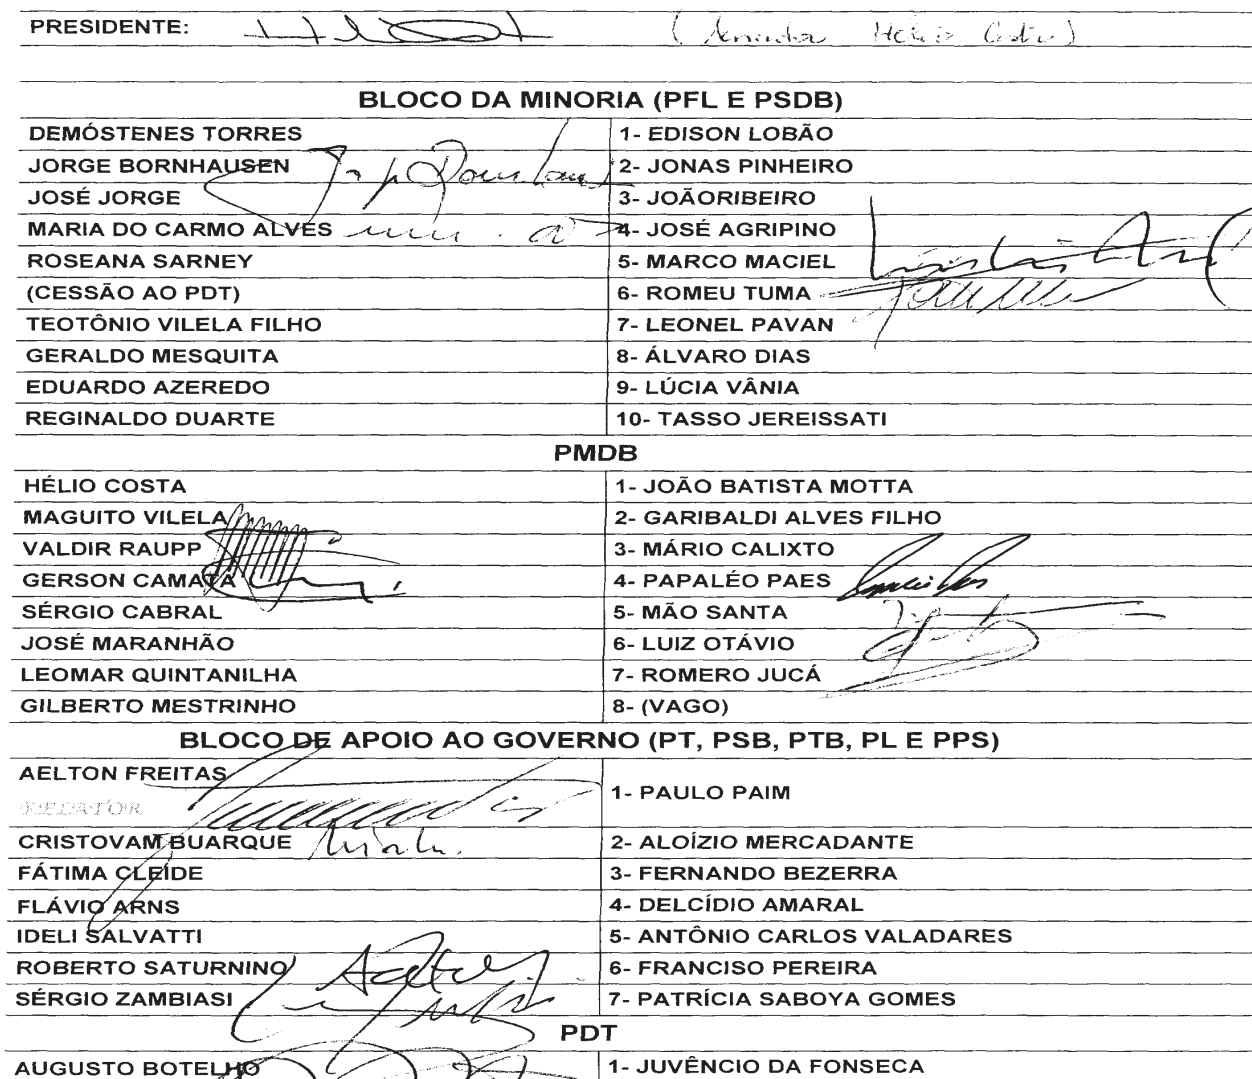 PRESIDENTE: (Senador Hélio Costa)
BLOCO DA MINORIA (PFL E PSDB)
DEMÓSTENES TORRES 1- EDISON LOBÃO
JORGE BORNHAUSEN 2- JONAS PINHEIRO
JOSÉ JORGE 3- JOÃORIBEIRO
MARIA DO CARMO ALVES 4- JOSÉ AGRIPINO
ROSEANA SARNEY 5- MARCO MACIEL
(CESSÃO AO PDT) 6- ROMEU TUMA
TEOTÔNIO VILELA FILHO 7- LEONEL PAVAN
GERALDO MESQUITA 8- ÁLVARO DIAS
EDUARDO AZEREDO 9- LÚCIA VÂNIA
REGINALDO DUARTE 10- TASSO JEREISSATI
PMDB
HÉLIO COSTA 1- JOÃO BATISTA MOTTA
MAGUITO VILELA 2- GARIBALDI ALVES FILHO
VALDIR RAUPP 3- MÁRIO CALIXTO
GERSON CAMATA 4- PAPALÉO PAES
SÉRGIO CABRAL 5- MÃO SANTA
JOSÉ MARANHÃO 6- LUIZ OTÁVIO
LEOMAR QUINTANILHA 7- ROMERO JUCÁ
GILBERTO MESTRINHO 8- (VAGO)
BLOCO DE APOIO AO GOVERNO (PT, PSB, PTB, PL E PPS)
AELTON FREITAS 1- PAULO PAIM
RELATOR
CRISTOVAM BUARQUE 2- ALOÍZIO MERCADANTE
FÁTIMA CLEIDE 3- FERNANDO BEZERRA
FLÁVIO ARNS 4- DELCÍDIO AMARAL
IDELI SALVATTI 5- ANTÔNIO CARLOS VALADARES
ROBERTO SATURNINO 6- FRANCISO PEREIRA
SÉRGIO ZAMBIASI 7- PATRÍCIA SABOYA GOMES
PDT
AUGUSTO BOTELHO 1- JUVÊNCIO DA FONSECA